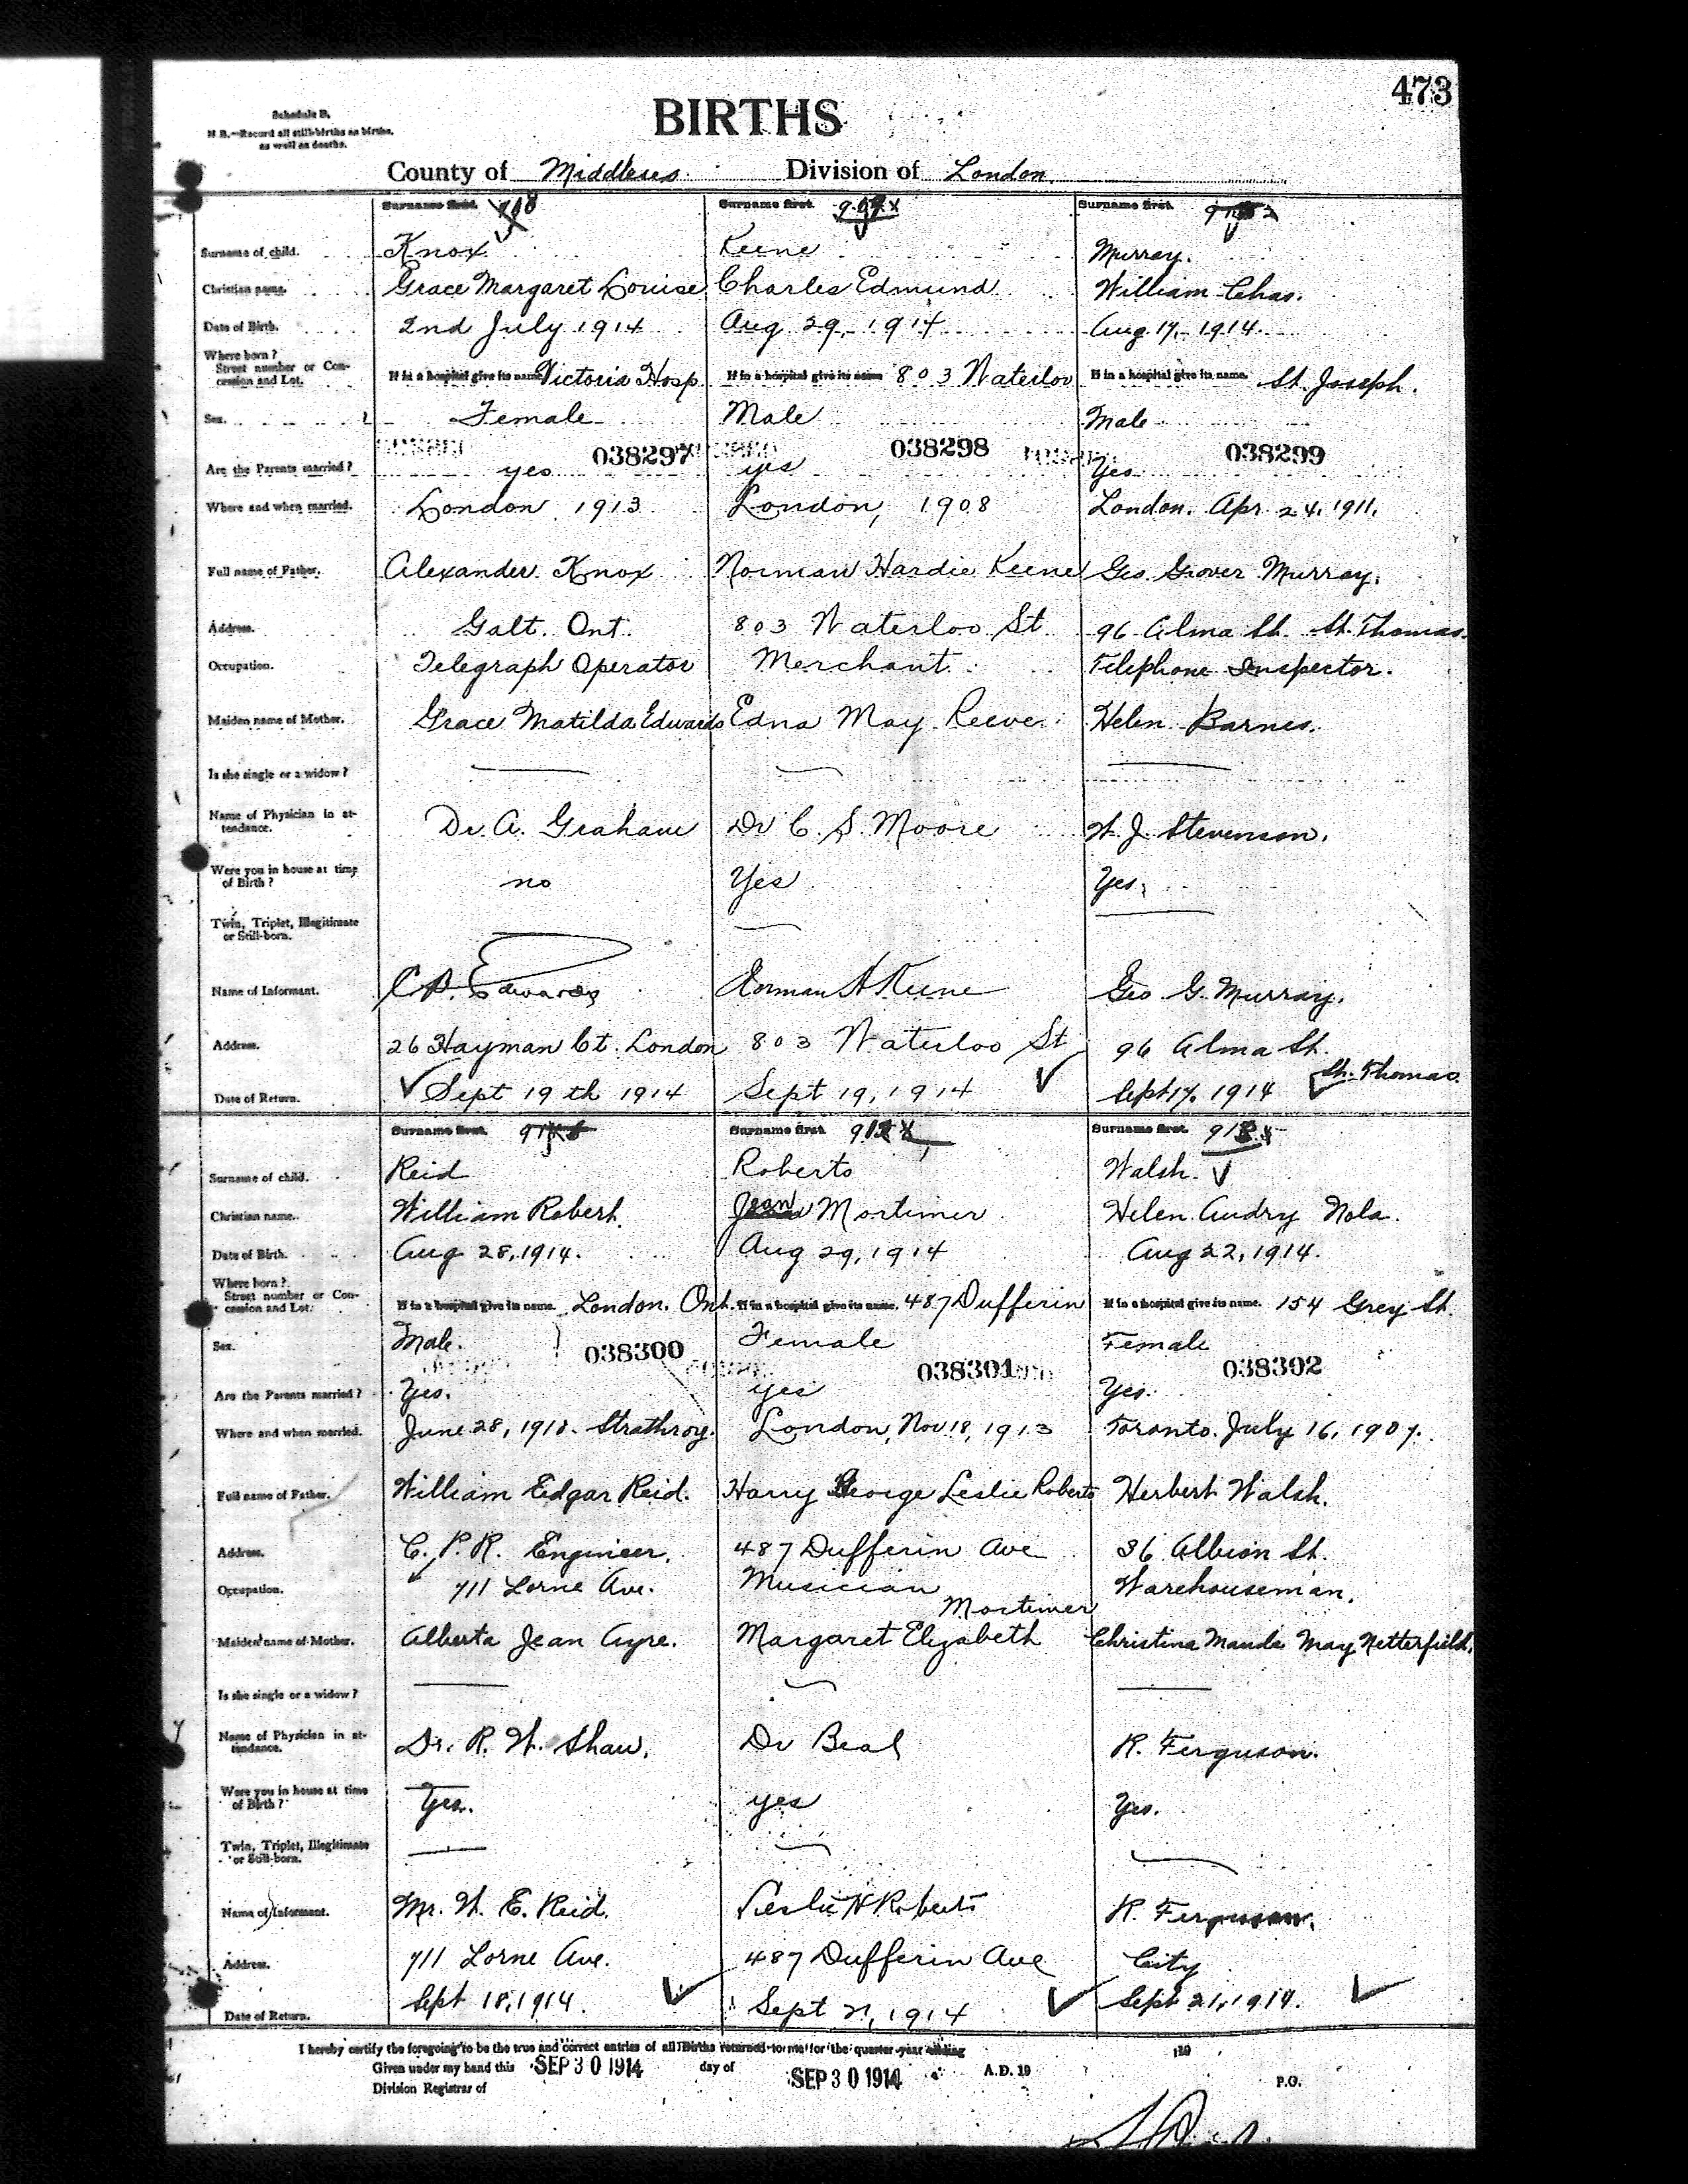 473
Schedule B.
N B.—Record all still-births as births,
as well as deaths.
BIRTHS
County of Middlesex Division of London
Surname first. 908 Surname first. 909 Surname first.
Surname of child. Knox Keene Murray.
Christian name. Grace Margaret Louise Charles Edmund William Chas.
Date of Birth. 2nd July 1914 Aug 29, 1914 Aug 17, 1914.
Where born?
Street number or Con-
cession and Lot. If in a hospital give its name Victoria Hosp. If in a hospital give its name 803 Waterloo If in a hospital give its name. St. Joseph.
Sex. Female Male Male
038297 038298 038299
Are the Parents married? yes yes Yes
Where and when married. London 1913 London, 1908 London. Apr 24, 1911.
Full name of Father. Alexander Knox Norman Hardie Keene Geo. Grover Murray.
Address. Galt. Ont. 803 Waterloo St 96 Alma St. St. Thomas.
Occupation. Telegraph Operator Merchant Telephone Inspector.
Maiden name of Mother. Grace Matilda Edwards Edna May Reeve Helen Barnes.
Is she single or a widow?
Name of Physician in at-
tendance. Dr. A. Graham Dr C. S. Moore W. J. Stevenson.
Were you in house at time
of Birth? no Yes Yes.
Twin, Triplet, Illegitimate
or Still-born.
Name of Informant. Edwards Norman H Keene Geo. G. Murray.
Address. 26 Hayman Ct. London 803 Waterloo St 96 Alma St.
St. Thomas.
Date of Return. Sept 19th 1914 Sept 19, 1914 Sept 17, 1914
Surname first. Surname first. Surname first.
Surname of child. Reid Roberts Walsh.
Christian name. William Robert. Jean Mortimer Helen Audry Nola.
Date of Birth. Aug 28, 1914. Aug 29, 1914 Aug 22, 1914.
Where born?
Street number or Con-
cession and Lot. If in a hospital give its name. London. Ont. If in a hospital give its name. 487 Dufferin If in a hospital give its name. 154 Grey St.
Sex. Male. Female Female
038300 038301 038302
Are the Parents married? Yes. yes Yes.
Where and when married. June 28, 1910. Strathroy. London, Nov 18, 1913 Toronto. July 16, 1907.
Full name of Father. William Edgar Reid. Harry George Leslie Roberts Herbert Walsh.
Address. C. P. R. Engineer. 487 Dufferin Ave 36 Albion St.
Occupation. 711 Lorne Ave. Musician Warehouseman.
Mortimer
Maiden name of Mother. Alberta Jean Ayre. Margaret Elizabeth Christina Maude May Netterfield.
Is she single or a widow?
Name of Physician in at-
tendance. Dr. R. W. Shaw. Dr Beal R. Ferguson.
Were you in house at time
of Birth? Yes. yes Yes.
Twin, Triplet, Illegitimate
or Still-born.
Name of Informant. Mr. W. E. Reid. Leslie H Roberts R. Ferguson.
Address. 711 Lorne Ave. 487 Dufferin Ave City
Date of Return. Sept 18, 1914. Sept 21, 1914 Sept 21, 1914.
I hereby certify the foregoing to be the true and correct entries of all Births returned to me for the quarter-year ending 19
Given under my hand this SEP 30 1914 day of SEP 30 1914 A.D. 19
Division Registrar of P.O.